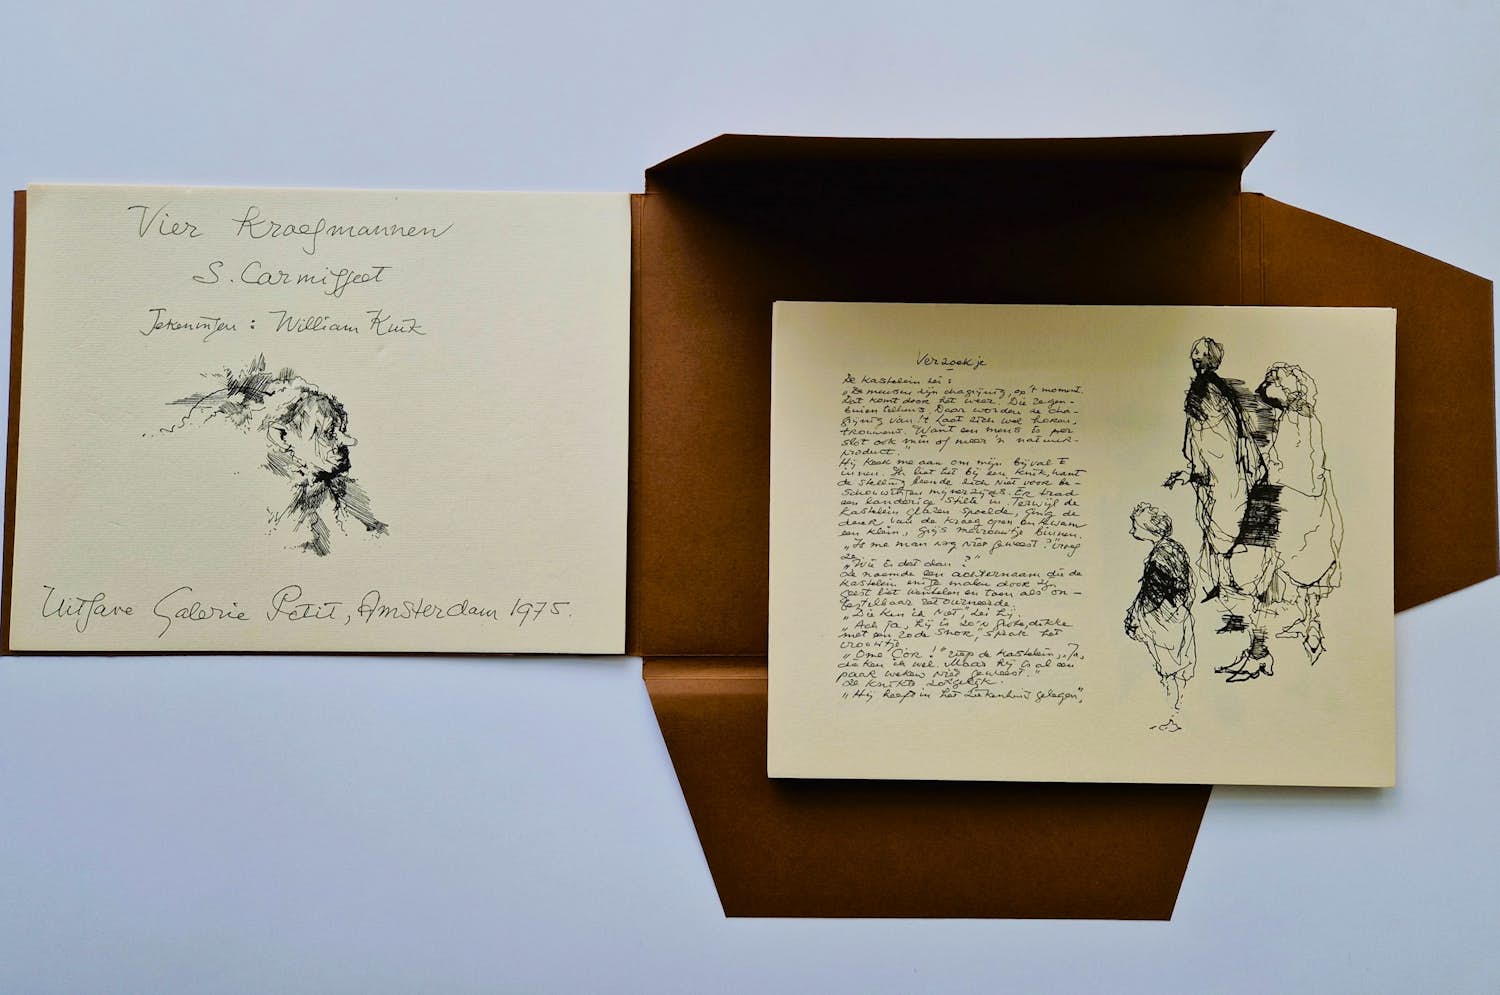 Vier Kroegmannen
S. Carmiggelt
Tekeningen: William Kuik
Uitgave Galerie Petit, Amsterdam 1975.
Verzoekje
De kastelein zei:
„De mensen zijn chagrijnig, op 't moment.
Dat komt door het weer. Die regen-
buien telkens. Daar worden ze cha-
grijnig van. 't Laat zich wel horen,
trouwens. Want een mens is per
slot ook min of meer 'n natuur-
product."
Hij keek me aan om mijn bijval te
innen. Ik liet het bij een knik, want
de stelling leende zich niet voor be-
schouwingen mijnerzijds. Er trad
een landerige stilte in. Terwijl de
kastelein glazen spoelde, ging de
deur van de kroeg open en kwam
een klein, grijs mevrouwtje binnen.
„Is me man nog niet geweest?" vroeg
ze.
„Wie is dat dan?"
Ze noemde een achternaam die de
kastelein enige malen door zijn
geest liet wentelen en toen als on-
bestelbaar retourneerde.
„Die ken ik niet," zei hij.
„Ach ja, hij is zo'n grote, dikke
met een rode snor," sprak het
vrouwtje.
„Ome Cor!" riep de kastelein, „Ja,
die ken ik wel. Maar hij is al een
paar weken niet geweest."
Ze knikte zorgelijk.
„Hij heeft in het ziekenhuis gelegen",